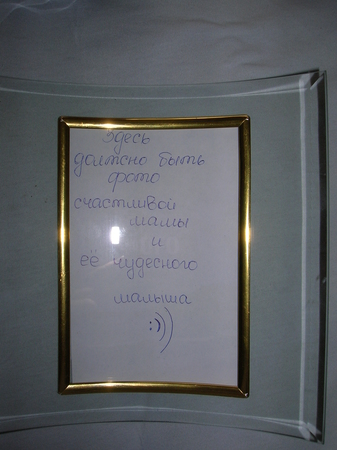 здесь
должно быть
фото
счастливой
мамы
и
её чудесного
малыша
:)))